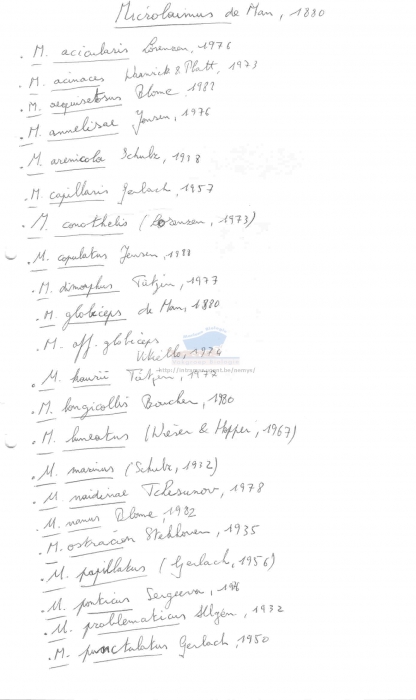 Microlaimus de Man, 1880
. M. acicularis Lorenzen, 1976
. M. acinaces Warwick & Platt, 1973
. M. aequisetosus Blome 1982
. M. annelisae Jensen, 1976
. M. arenicola Schulz, 1938
. M. capillaris Gerlach, 1957
. M. conothelis (Lorenzen, 1973)
. M. copulatus Jensen, 1988
. M. dimorphus Tätzin, 1977
. M. globiceps de Man, 1880
. M. aff. globiceps
1974
. M. kaurii Tätzin, 1977
. M. longicollis Boucher, 1980
. M. lunatus (Wieser & Hopper, 1967)
. M. marinus (Schulz, 1932)
. M. naidinae Tchesunov, 1978
. M. nanus Blome, 1982
. M. ostracion Stekhoven, 1935
. M. papillatus (Gerlach, 1956)
. M. ponticus Sergeeva,
. M. problematicus Allgén, 1932
. M. punctulatus Gerlach, 1950